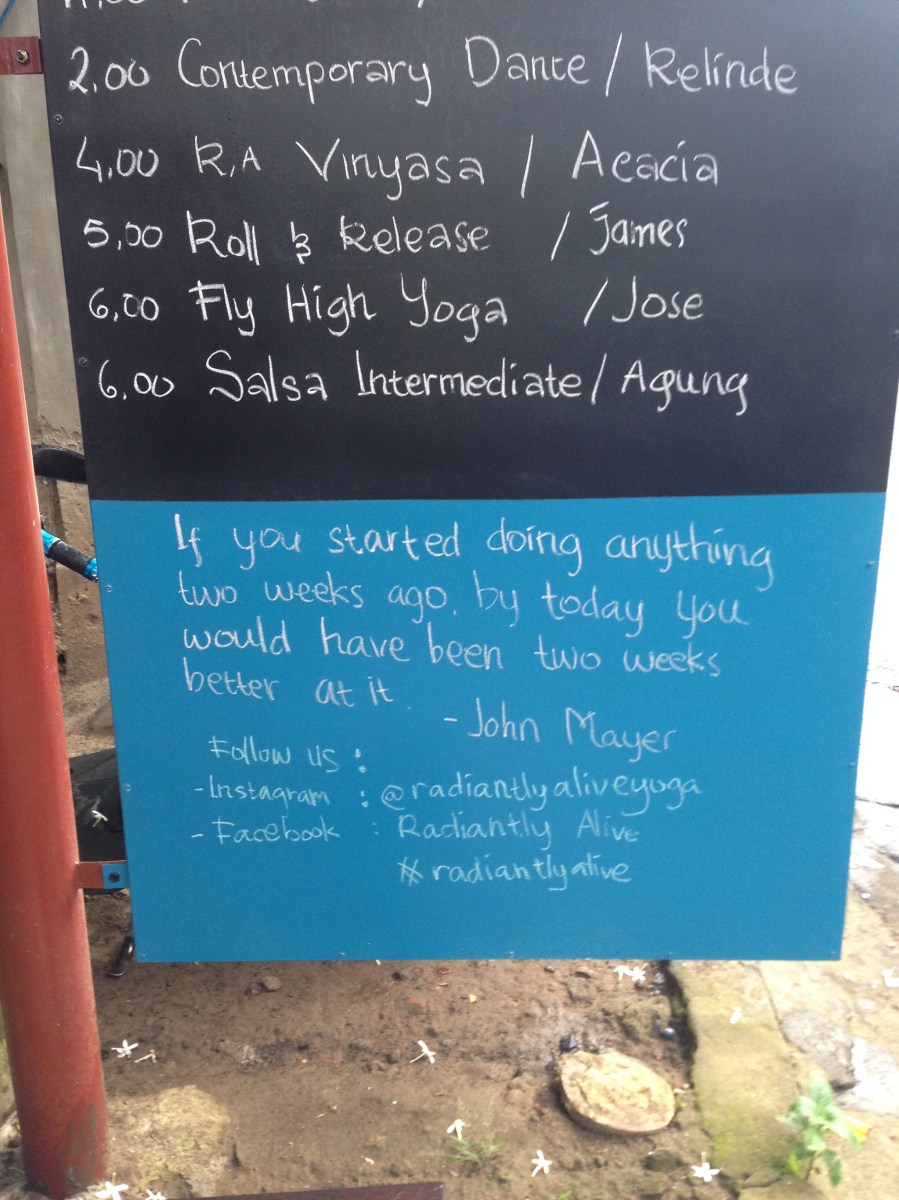 2,00 Contemporary Dance / Relinde
4,00 R,A Vinyasa / Acacia
5,00 Roll & Release / James
6,00 Fly High Yoga / Jose
6,00 Salsa Intermediate / Agung
If you started doing anything
two weeks ago, by today you
would have been two weeks
better at it.
- John Mayer
Follow us :
- Instagram : @radiantlyaliveyoga
- Facebook : Radiantly Alive
#radiantlyalive